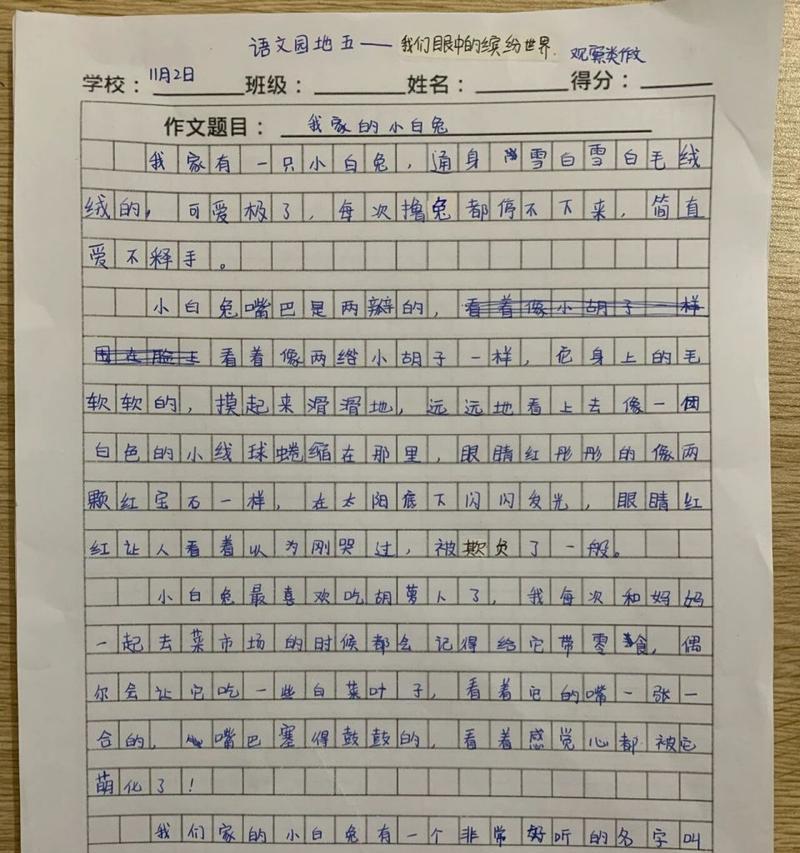 语文园地五——我们眼中的缤纷世界. 观察类作文
学校：11月2日 班级： 姓名： 得分：
作文题目：我家的小白兔
我家有一只小白兔，通身雪白雪白毛绒
绒的，可爱极了，每次撸兔都停不下来，简直
爱不释手。
小白兔嘴巴是两瓣的，看着像小胡子一样
围在脸上看着像两绺小胡子一样，它身上的毛
软软的，摸起来滑滑地，远远地看上去像一团
白色的小线球蜷缩在那里，眼睛红彤彤的像两
颗红宝石一样，在太阳底下闪闪发光，眼睛红
红让人看着以为刚哭过，被欺负了一般。
小白兔最喜欢吃胡萝卜了，我每次和妈妈
一起去菜市场的时候都会记得给它带零食，偶
尔会让它吃一些白菜叶子，看着它的嘴一张一
合的，嘴巴塞得鼓鼓的，看着感觉心都被它
萌化了！
我们家的小白兔有一个非常好听的名字叫